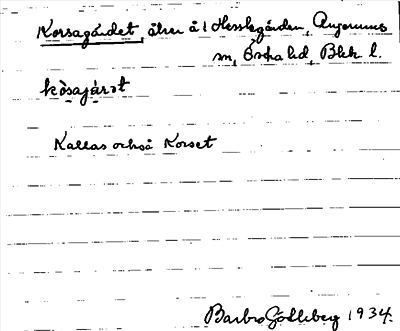 Korsagärdet, åker å 1 Hesslegården, Augerums
sn, Östra hd, Blek. l.
kòsajárət
Kallas också Korset
Barbro Gödeberg 1934.